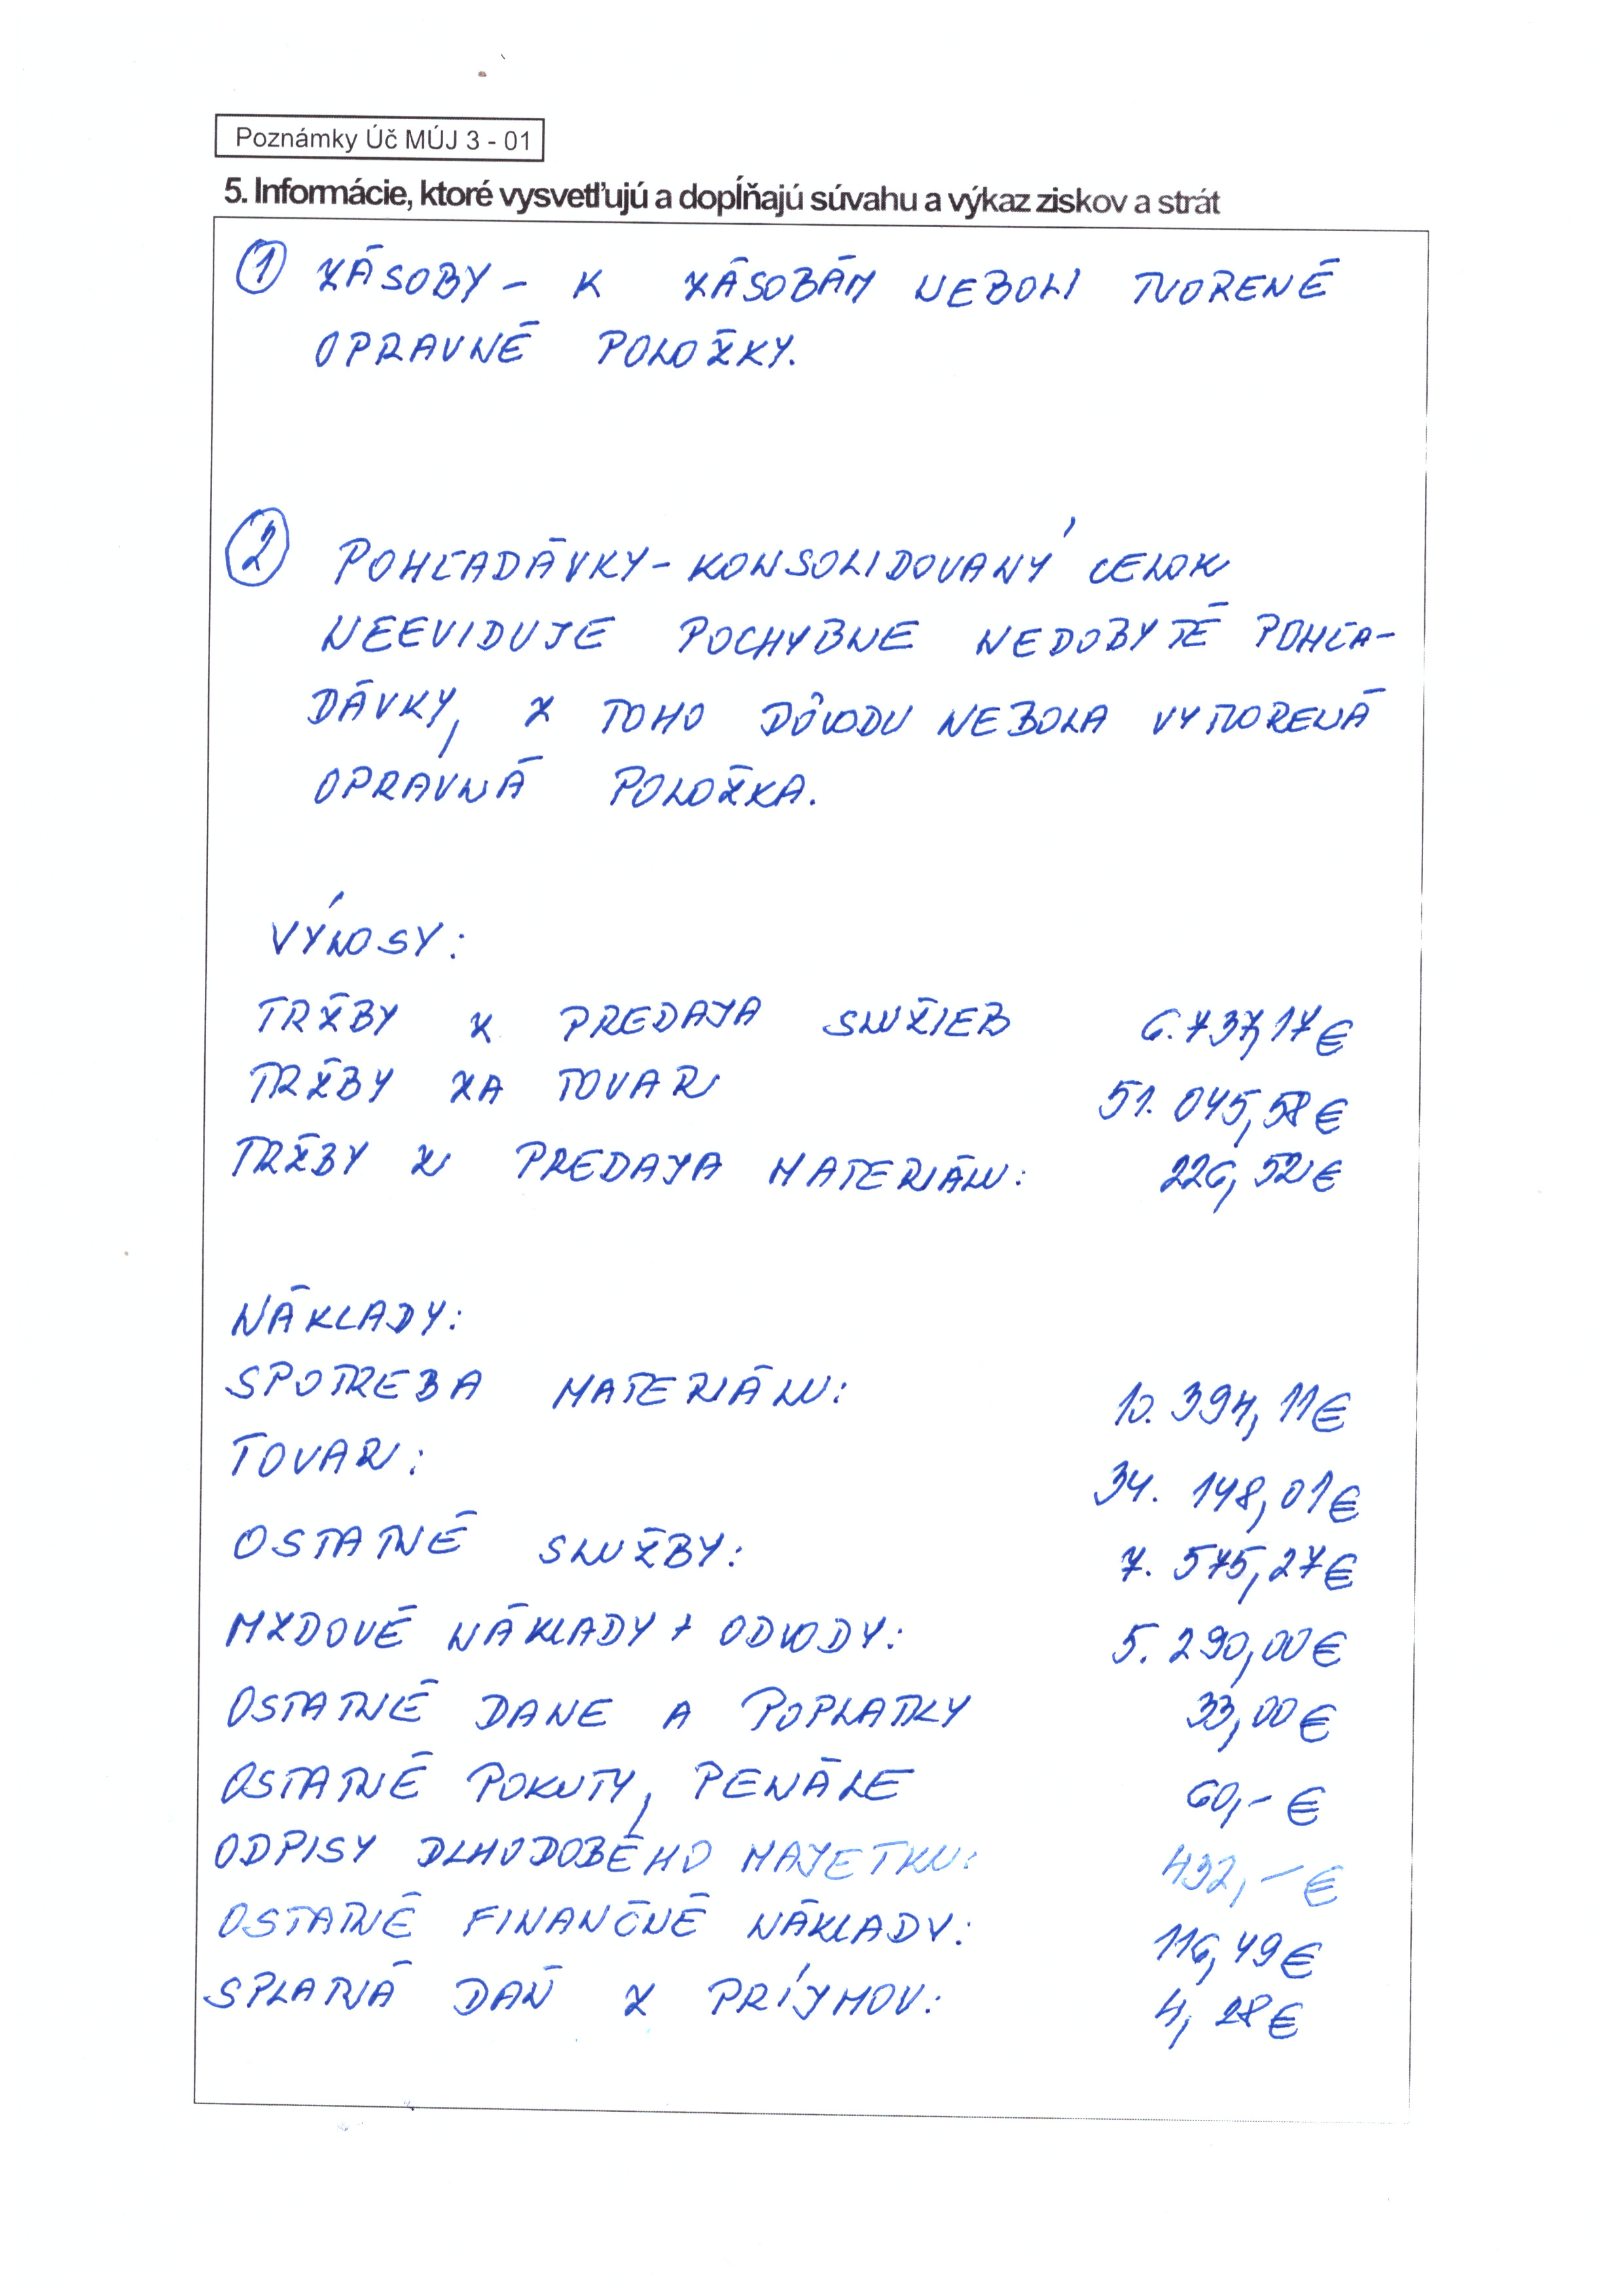 Poznámky Úč MÚJ 3 - 01
5. Informácie, ktoré vysvetľujú a dopĺňajú súvahu a výkaz ziskov a strát
① ZÁSOBY - K ZÁSOBÁM NEBOLI TVORENÉ
OPRAVNÉ POLOŽKY.
② POHĽADÁVKY - KONSOLIDOVANÝ CELOK
NEEVIDUJE POCHYBNE NEDOBYTÉ POHĽA-
DÁVKY, Z TOHO DÔVODU NEBOLA VYTVORENÁ
OPRAVNÁ POLOŽKA.
VÝNOSY:
TRŽBY Z PREDAJA SLUŽIEB 6.737,17€
TRŽBY ZA TOVAR 51.045,58€
TRŽBY Z PREDAJA MATERIÁLU: 226,52€
NÁKLADY:
SPOTREBA MATERIÁLU: 10.394,11€
TOVAR: 34.148,01€
OSTATNÉ SLUŽBY: 7.575,27€
MZDOVÉ NÁKLADY + ODVODY: 5.290,00€
OSTATNÉ DANE A POPLATKY 33,00€
OSTATNÉ POKUTY, PENÁLE 60,- €
ODPISY DLHODOBÉHO MAJETKU: 432,- €
OSTATNÉ FINANČNÉ NÁKLADY: 116,49€
SPLATNÁ DAŇ Z PRÍJMOV: 4,28€